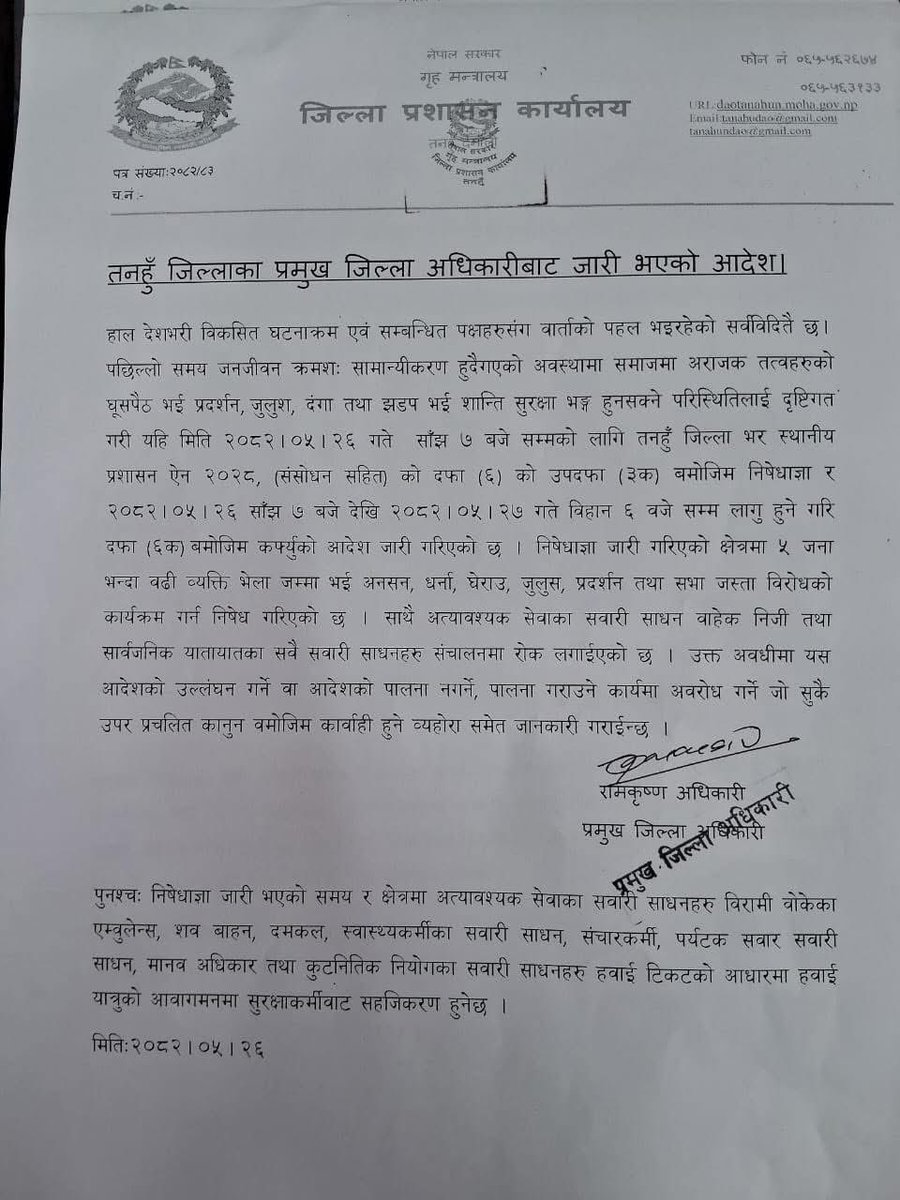 नेपाल सरकार
गृह मन्त्रालय
जिल्ला प्रशासन कार्यालय
फोन नं ०६५-५६२६७४
०६५-५६३१३३
URL:daotanahun.moha.gov.np
Email:tanahudao@gmail.com
tanahundao@gmail.com
नेपाल सरकार
गृह मन्त्रालय
जिल्ला प्रशासन कार्यालय
तनहुँ
पत्र संख्या:२०८२/८३
च.नं :-
तनहुँ जिल्लाका प्रमुख जिल्ला अधिकारीबाट जारी भएको आदेश।
हाल देशभरी विकसित घटनाक्रम एवं सम्बन्धित पक्षहरुसंग वार्ताको पहल भइरहेको सर्वविदितै छ।
पछिल्लो समय जनजीवन क्रमशः सामान्यीकरण हुदैगएको अवस्थामा समाजमा अराजक तत्वहरुको
घूसपैठ भई प्रदर्शन, जुलुश, दंगा तथा झडप भई शान्ति सुरक्षा भङ्ग हुनसक्ने परिस्थितिलाई दृष्टिगत
गरी यहि मिति २०८२।०५।२६ गते साँझ ७ बजे सम्मको लागि तनहुँ जिल्ला भर स्थानीय
प्रशासन ऐन २०२८, (संसोधन सहित) को दफा (६) को उपदफा (३क) बमोजिम निषेधाज्ञा र
२०८२।०५।२६ साँझ ७ बजे देखि २०८२।०५।२७ गते विहान ६ वजे सम्म लागु हुने गरि
दफा (६क) बमोजिम कर्फ्युको आदेश जारी गरिएको छ । निषेधाज्ञा जारी गरिएको क्षेत्रमा ५ जना
भन्दा वढी व्यक्ति भेला जम्मा भई अनसन, धर्ना, घेराउ, जुलुस, प्रदर्शन तथा सभा जस्ता विरोधको
कार्यक्रम गर्न निषेध गरिएको छ । साथै अत्यावश्यक सेवाका सवारी साधन वाहेक निजी तथा
सार्वजनिक यातायातका सवै सवारी साधनहरु संचालनमा रोक लगाईएको छ । उक्त अवधीमा यस
आदेशको उल्लंघन गर्ने वा आदेशको पालना नगर्ने, पालना गराउने कार्यमा अवरोध गर्ने जो सुकै
उपर प्रचलित कानुन वमोजिम कार्वाही हुने व्यहोरा समेत जानकारी गराईन्छ ।
रामकृष्ण अधिकारी
प्रमुख जिल्ला अधिकारी
प्रमुख जिल्ला अधिकारी
पुनश्चः निषेधाज्ञा जारी भएको समय र क्षेत्रमा अत्यावश्यक सेवाका सवारी साधनहरु विरामी वोकेका
एम्वुलेन्स, शव बाहन, दमकल, स्वास्थ्यकर्मीका सवारी साधन, संचारकर्मी, पर्यटक सवार सवारी
साधन, मानव अधिकार तथा कुटनितिक नियोगका सवारी साधनहरु हवाई टिकटको आधारमा हवाई
यात्रुको आवागमनमा सुरक्षाकर्मीवाट सहजिकरण हुनेछ ।
मिति:२०८२।०५।२६